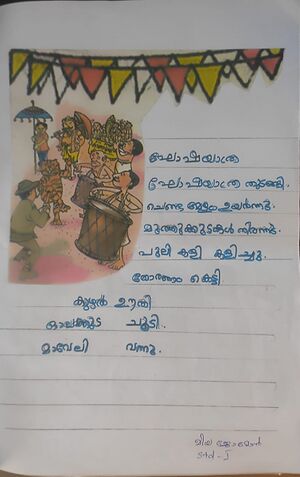 ഘോഷയാത്ര
ഘോഷയാത്ര തുടങ്ങി.
ചെണ്ട മേളം ഉയർന്നു.
മുത്തുക്കുടകൾ നിരന്നു.
പുലി കളി കളിച്ചു.
തോരണം കെട്ടി
കുഴൽ ഊതി
ഓലക്കുട ചൂടി.
മാവേലി വന്നു.
മിയ ജോമോൻ
Std - I